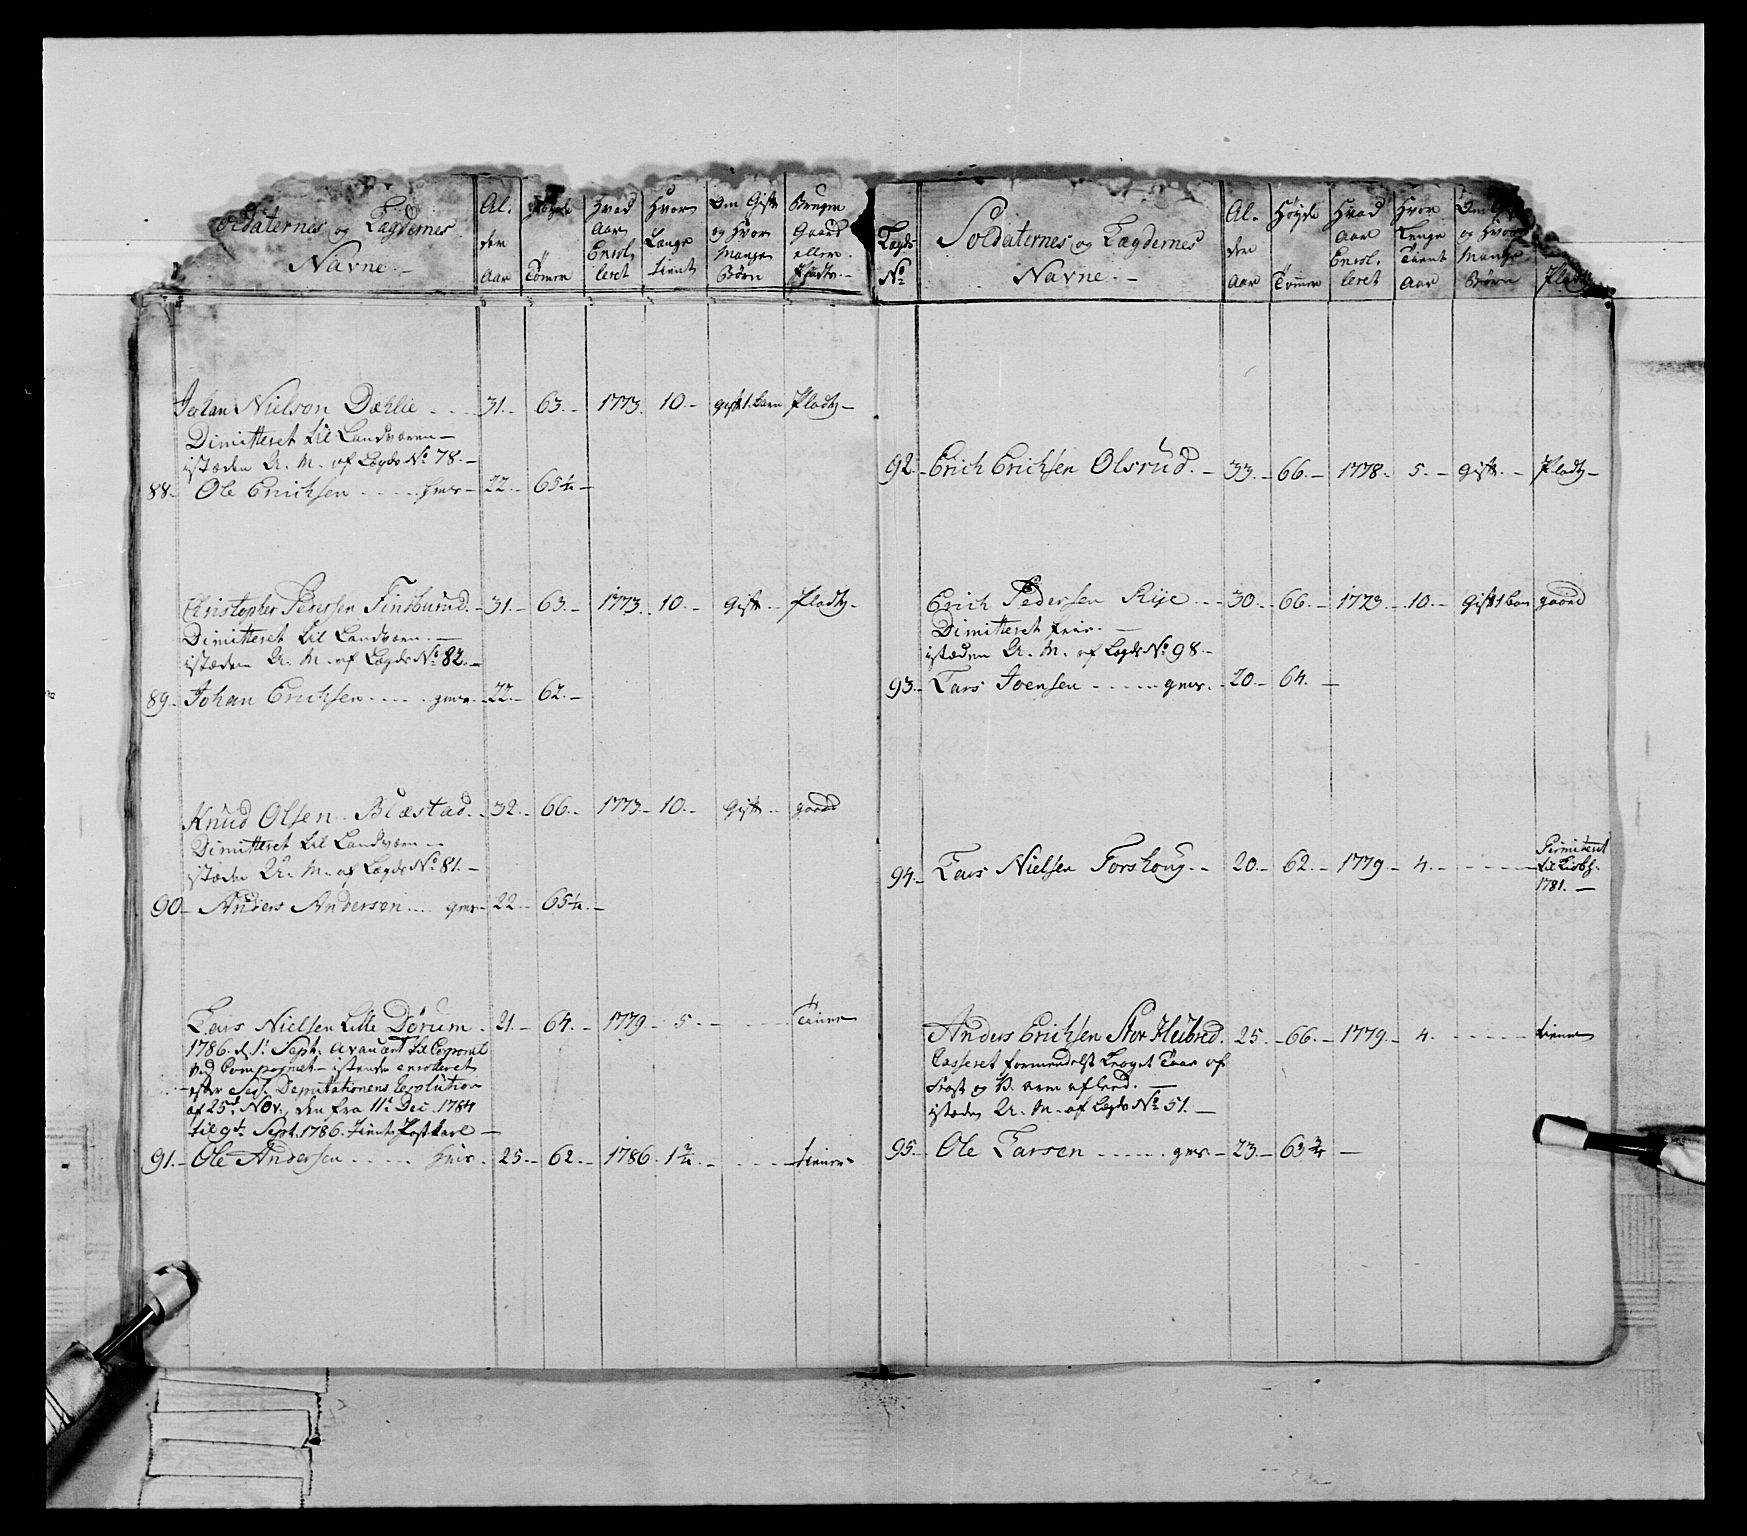 Soldaternes og Lægdernes
Navne.
Al.
der
Aar
Høyde
Tomer
Hvad
Aar
Enrol
leret
Hvor
Længe
tient
Om Gift
og hvor
Mange
Børn
Bruger
Gaard
eller
Plads
Johan Nielsen Dæhlie . . . 31. 63. 1773. 10. gift 1. barn Plads
Dimitteret til Landværn
istæden U. M. af Lægds No 78.
88. Ole Erichsen . . . . . 22. 65 1/4
Christopher Pedersen Finsburud. 31. 63. 1773. 10. Gift Plads
Dimitteret til Landværn.
istæden U. M. af Lægds No 82.
89. Johan Erichsen . . . . . gevr. 22. 62.
Knud Olsen Blæstad. 32. 66. 1773. 10. Gift gaard
Dimitteret til Landværn
istæden U. M. af Lægds No 81.
90. Anders Andersen . . . gevr. 22. 65 1/4
Lars Nielsen Lille Dørum. 21. 64. 1779. 5. tiener
1786. d. 1. Sept. avancert til Corporal
ved Compagniet istæden enrolleret
efter Sess. Deputationens Resolution
af 25de Nov. den fra 11te Dec. 1784
til 9de Sept. 1786. tient Postkarl
91. Ole Andersen . . . . . 25. 62. 1786. 1 3/4. tiener
Lægds
No
Soldaternes og Lægdernes
Navne.
Al.
der
Aar
Høyde
Tommer
Hvad
Aar
Enrol.
leret
Hvor
Længe
Tient
Aar
Om Gift
og hvor
Mange
Børn
Plads
92. Erich Erichsen Olsrud. 33. 66. 1778. 5. gift. Plads
Erich Pedersen Rije . . 30. 66. 1773. 10. Gift 1 barn gaard
Dimitteret
istæden U. M. af Lægds No 98.
93. Lars Joensen . . . . . gevr. 20. 64.
94. Lars Nielsen Forshoug. 20. 62. 1779. 4. Permiteret
til Livbg.
1781.
Anders Erichsen Stor Heibred. 25. 66. 1779. 4. tiener
Casseret formedelst Taar af
Frost og
istæden U. M. af Lægds No 51.
95. Ole Larsen . . . . . gevr. 23. 63 3/4